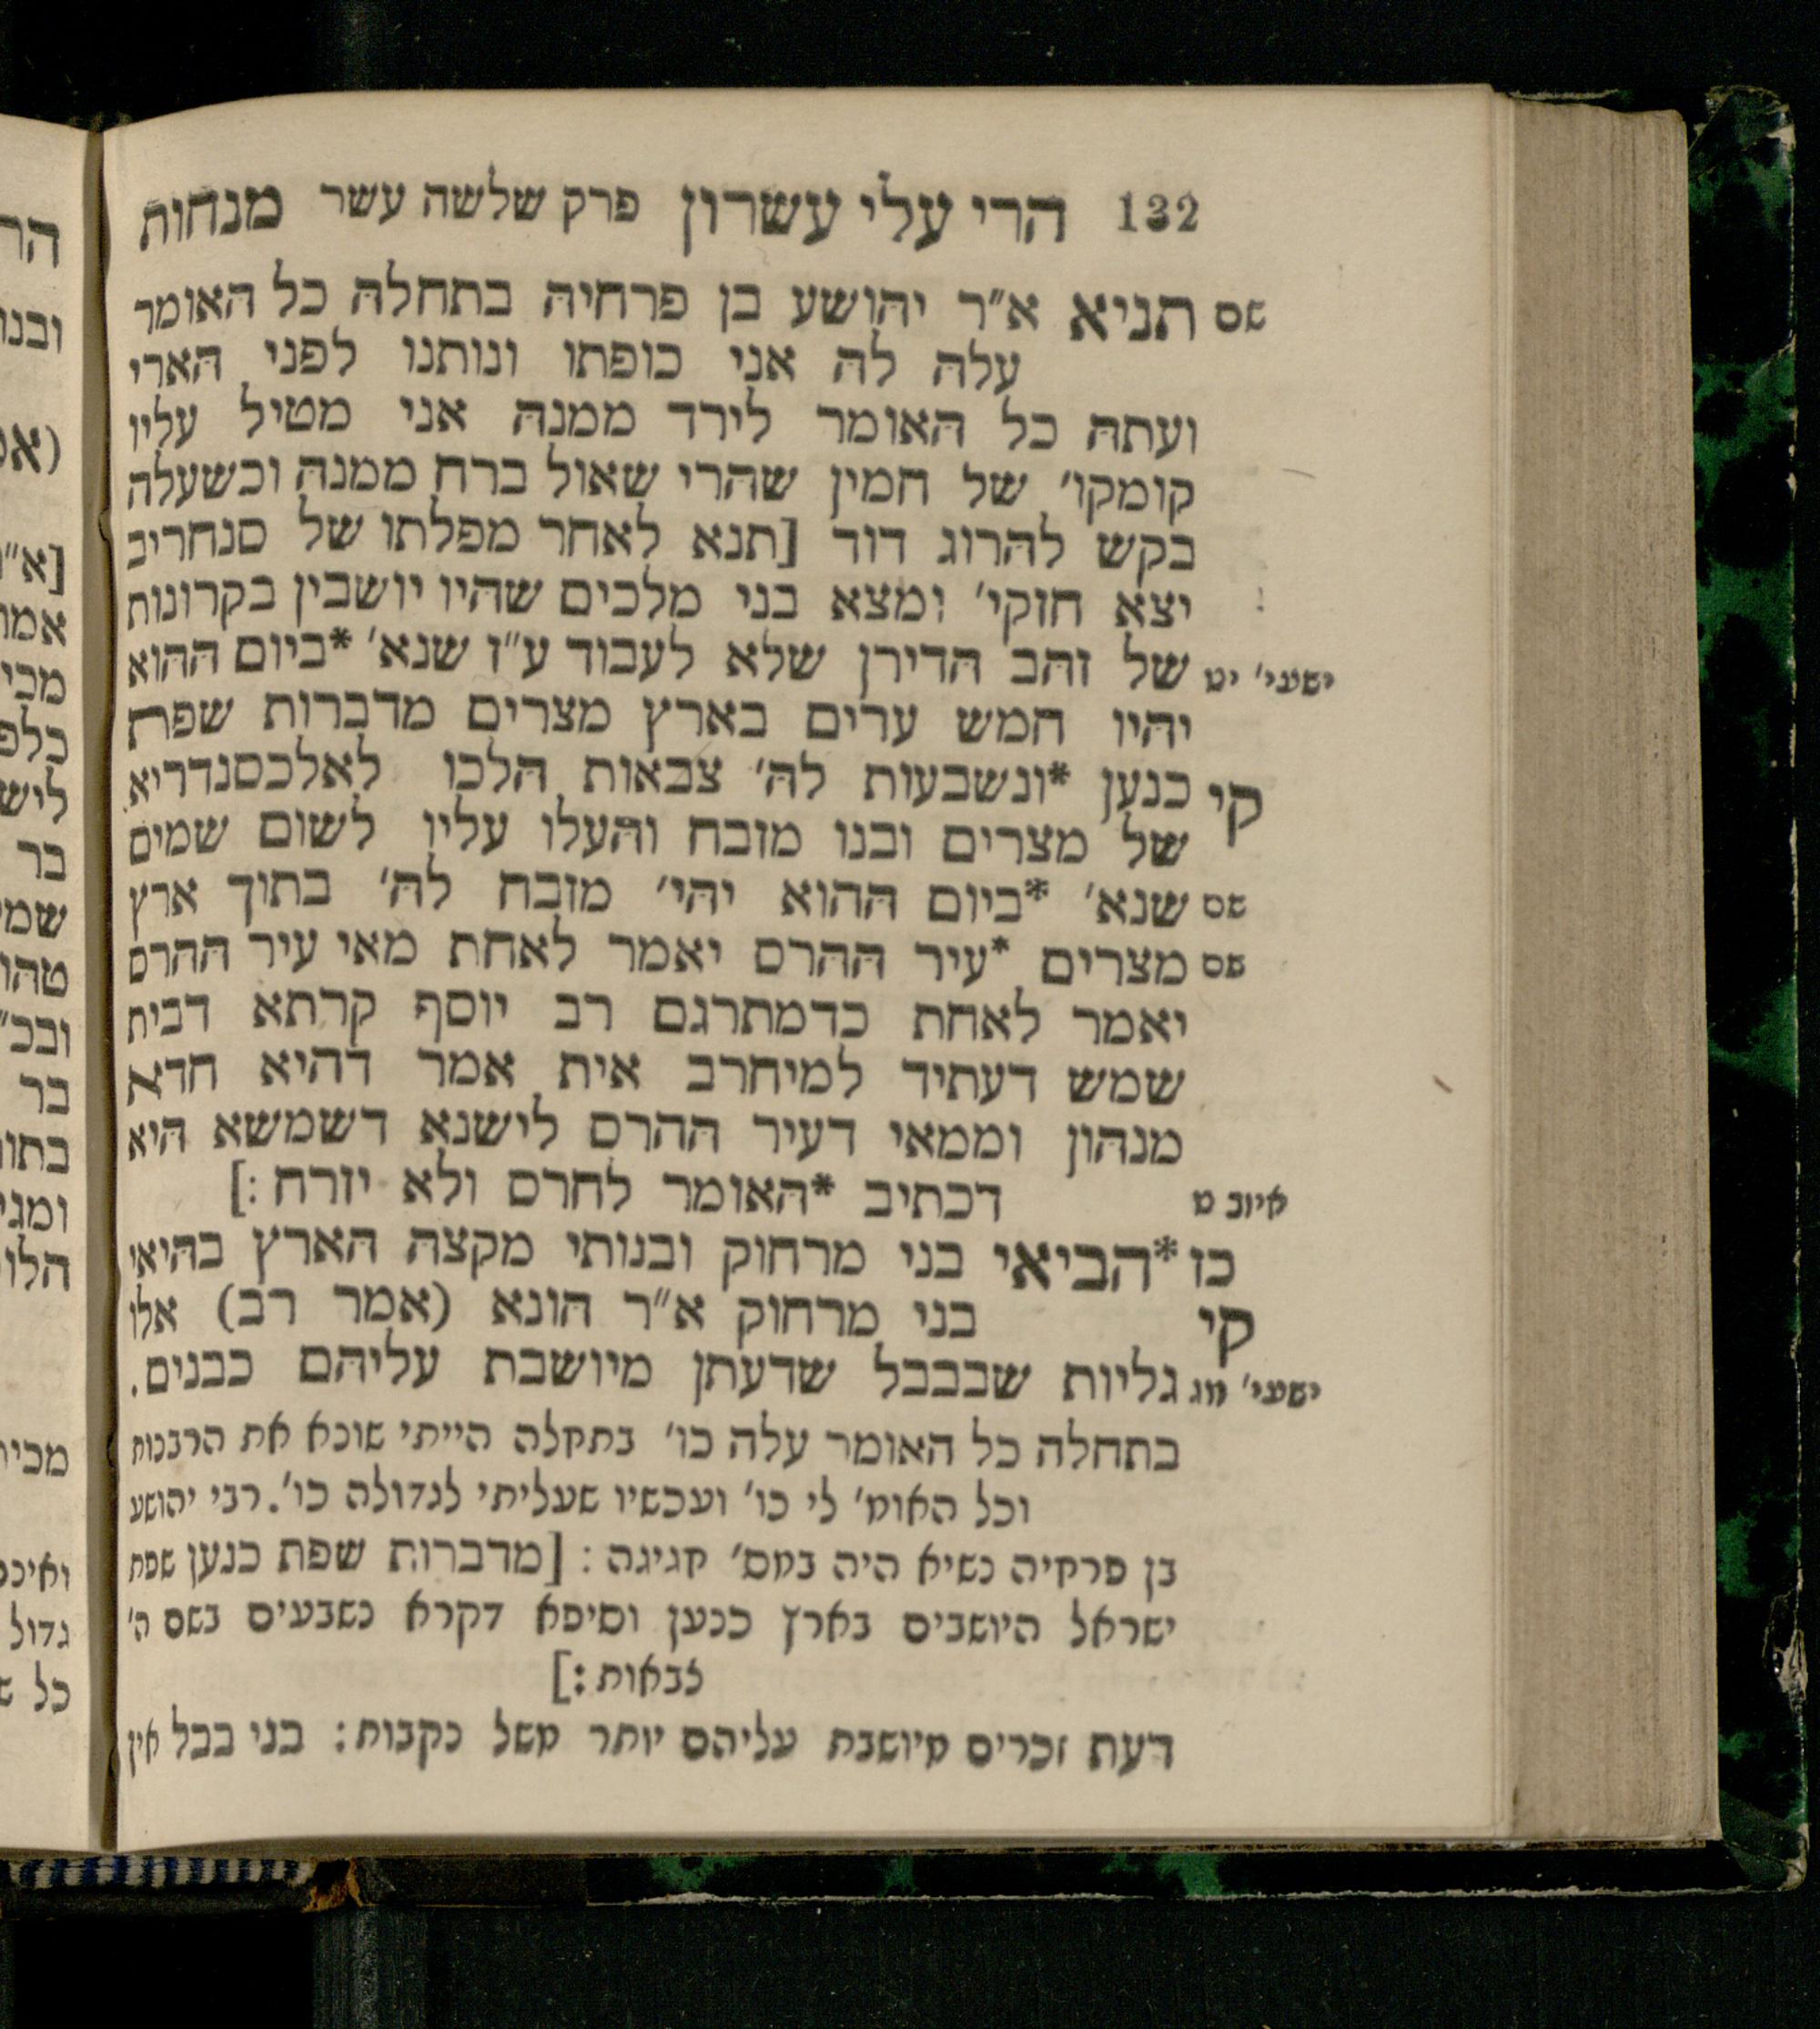 132 הרי עלי עשרון פרק שלשה עשר מנחות
שם תניא א״ר יהושע בן פרחיה בתחלה כל האומר
עלה לה אני כופתו ונותנו לפני הארי
ועתה כל האומר לירד ממנה אני מטיל עליו
קומקו׳ של חמין שהרי שאול ברח ממנה וכשעלה
בקש להרוג דוד [תנא לאחר מפלתו של סנחריב
יצא חזקי׳ ומצא בני מלכים שהיו יושבין בקרונות
ישעי׳ יט של זהב הדירן שלא לעבוד ע״ז שנא׳ *ביום ההוא
יהיו חמש ערים בארץ מצרים מדברות שפת
קי כנען *ונשבעות לה׳ צבאות הלכו לאלכסנדריא
של מצרים ובנו מזבח והעלו עליו לשום שמים
שם שנא׳ *ביום ההוא יהי׳ מזבח לה׳ בתוך ארץ
שם מצרים *עיר ההרס יאמר לאחת מאי עיר ההרס
יאמר לאחת כדמתרגם רב יוסף קרתא דבית
שמש דעתיד למיחרב אית אמר דהיא חדא
מנהון וממאי דעיר ההרס לישנא דשמשא היא
איוב ט דכתיב *האומר לחרס ולא יזרח :]
כז *הביאי בני מרחוק ובנותי מקצה הארץ בהיאי
קי בני מרחוק א״ר הונא (אמר רב) אלו
ישעי׳ מג גליות שבבבל שדעתן מיושבת עליהם כבנים.
בתחלה כל האומר עלה כו׳ בתחלה הייתי שונא את הרבנות
וכל האומ׳ לי כו׳ ועכשיו שעליתי לגדולה כו׳. רבי יהושע
בן פרחיה נשיא היה במס׳ חגיגה : [מדברות שפת כנען שפת
ישראל היושבים בארץ כנען וסיפא דקרא נשבעים בשם ה׳
צבאות :]
דעת זכרים מיושבת עליהם יותר משל נקבות : בני בבל אין